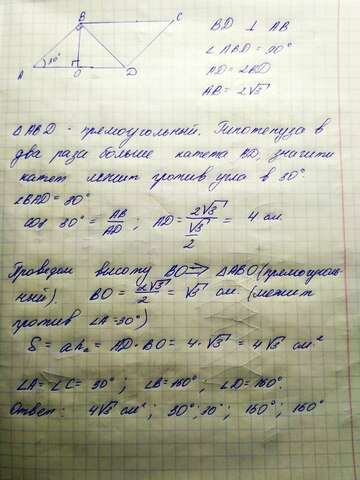 B C
A 30° O D
BD ⊥ AB
∠ABD = 90°
AD = 2BD
AB = 2√3
△ABD - прямоугольный. Гипотенуза в
два раза больше катета BD, значит
катет лежит против угла в 30°.
∠BAD = 30°
cos 30° = AB/AD ; AD = 2√3/(√3/2) = 4 см
Проведем высоту BO ⇒ △ABO (прямоуголь-
ный). BO = 2√3/2 = √3 см (лежит
против ∠A = 30°)
S = ahₐ = AD · BO = 4 · √3 = 4√3 см²
∠A = ∠C = 30° ; ∠B = 150° ; ∠D = 150°.
Ответ: 4√3 см² ; 30° ; 30° ; 150° ; 150°